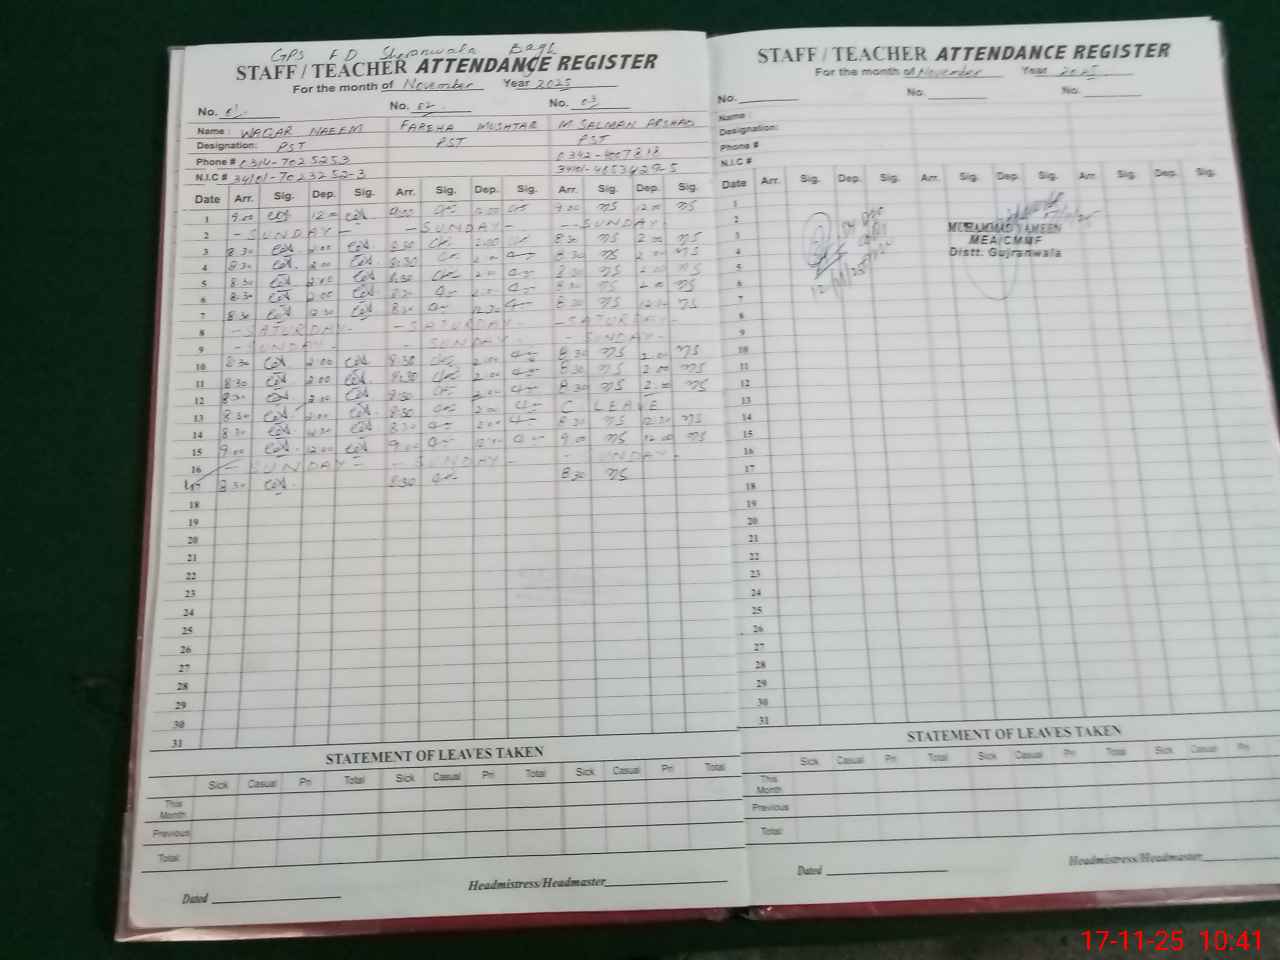 GPS F D Sheranwala Bagh
STAFF / TEACHER ATTENDANCE REGISTER
For the month of November Year 2025
No. 01 No. 02 No. 03
Name : WAQAR NAEEM FAREHA MUSHTAQ M SALMAN ARSHAD
Designation: PST PST PST
Phone # 0314-7025253 0342-4007818
N.I.C #
Date Arr. Sig. Dep. Sig. Arr. Sig. Dep. Sig. Arr. Sig. Dep. Sig.
1 9.00 12.00 9:00 12.00 9.00 12.00
2 - SUNDAY - - SUNDAY - - SUNDAY -
3 8.30 2.00 8:30 2.00 8.30 2.00
4 8.30 2.00 8:30 2.00 8.30 2.00
5 8.30 2.00 8:30 2.00 8.30 2.00
6 8.30 2.00 8:30 2.00 8.30 2.00
7 8.30 12.30 8:30 12.30 8.30 12.30
8 - SATURDAY - - SATURDAY - - SATURDAY -
9 - SUNDAY - - SUNDAY - - SUNDAY -
10 8.30 2.00 8:30 2.00 8.30 2.00
11 8.30 2.00 8:30 2.00 8.30 2.00
12 8.30 2.00 8:30 2.00 8.30 2.00
13 8.30 2.00 8:30 2.00 C LEAVE
14 8.30 12.30 8:30 8.30 12.30
15 9.00 12.00 9:00 12.00 9.00 12.00
16 - SUNDAY - - SUNDAY - - SUNDAY -
17 8.30 8:30 8.30
18
19
20
21
22
23
24
25
26
27
28
29
30
31
STATEMENT OF LEAVES TAKEN
Sick Casual Pri Total Sick Casual Pri Total Sick Casual Pri Total
This Month
Previous
Total
Dated Headmistress/Headmaster
STAFF / TEACHER ATTENDANCE REGISTER
For the month of November Year 2025
No. No. No.
Name :
Designation:
Phone #
N.I.C #
Date Arr. Sig. Dep. Sig. Arr. Sig. Dep. Sig. Arr Sig. Dep. Sig.
1
2
3
4
5
6
7
8
9
10
11
12
13
14
15
16
17
18
19
20
21
22
23
24
25
26
27
28
29
30
31
MUHAMMAD YAMEEN
MEA/CMMF
Distt. Gujranwala
STATEMENT OF LEAVES TAKEN
Sick Casual Pri Total Sick Casual Pri Total Sick Casual Pri
This Month
Previous
Total
Dated Headmistress/Headmaster
17-11-25 10:41